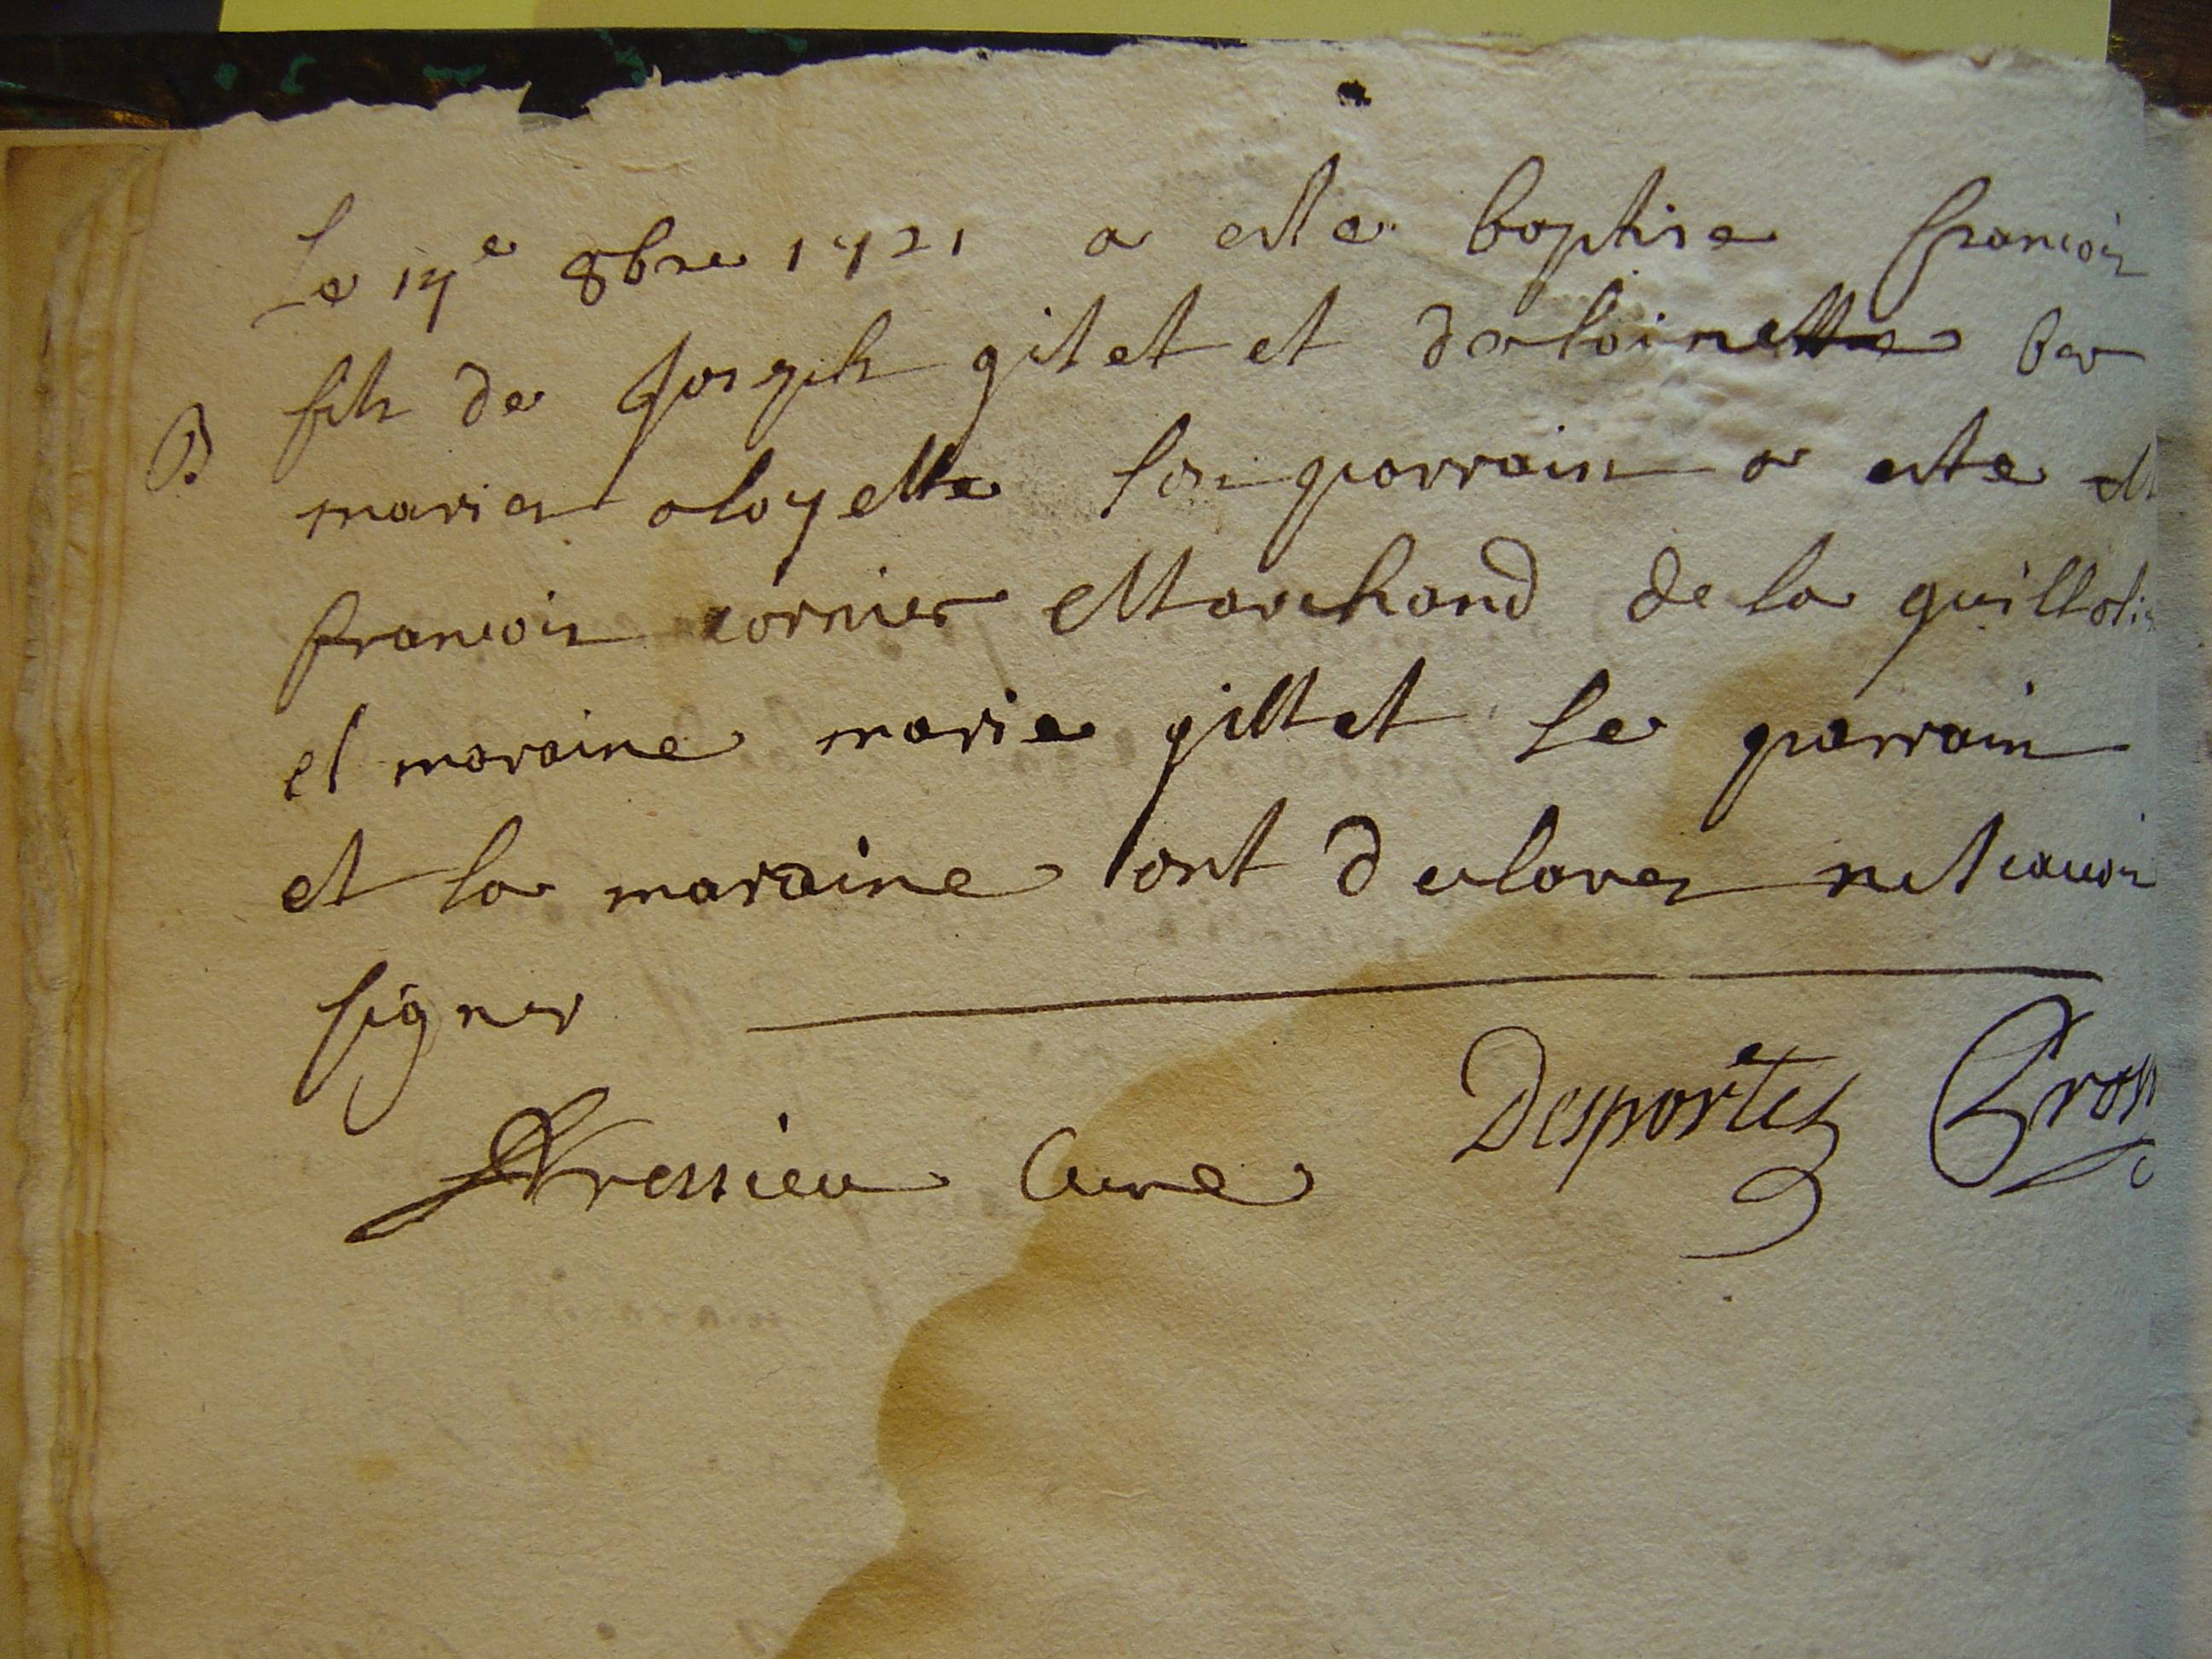 Le 17e 8bre 1721 a esté baptise francois
fils de Joseph gilet et dantoinette
B
maries a loyette son parrain a este
francois cornier Marchand de la guilloti
et maraine marie gillet le parrain
et la maraine ont declares ne scavoir
signer
Dressieu Cure Desportes Gros